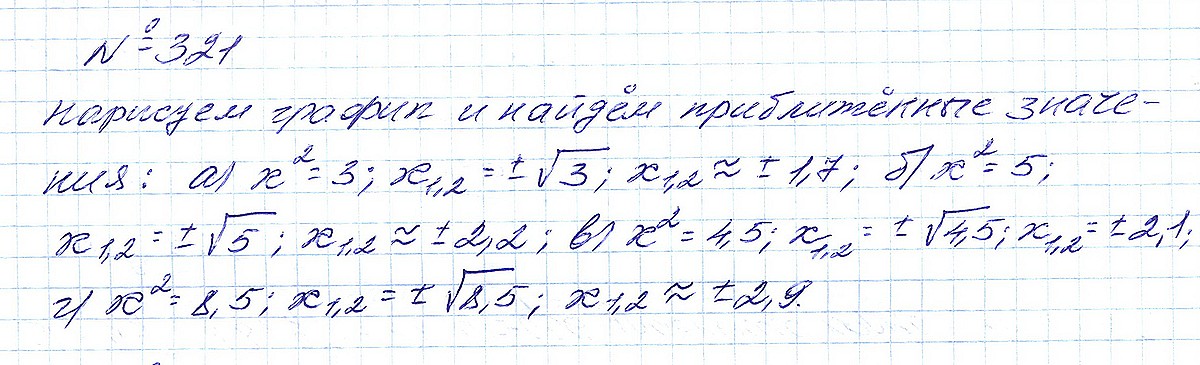 № 321
нарисуем график и найдём приближённые значе-
ния: а) x² = 3; x₁,₂ = ±√3; x₁,₂ ≈ ±1,7; б) x² = 5;
x₁,₂ = ±√5; x₁,₂ ≈ ±2,2; в) x² = 4,5; x₁,₂ = ±√4,5; x₁,₂ = ±2,1;
г) x² = 8,5; x₁,₂ = ±√8,5; x₁,₂ ≈ ±2,9.